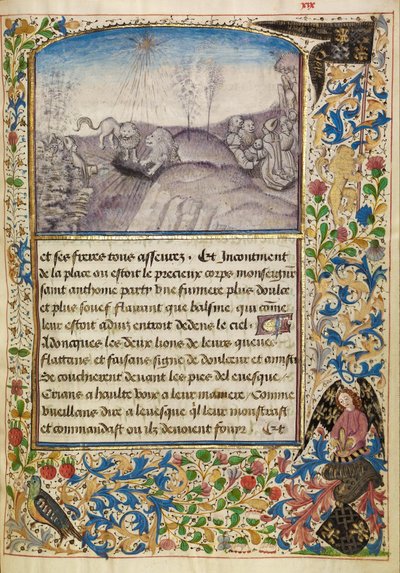 xix
et ses freres tous asseurez. Et Incontinent
de la place ou estoit le precieux corps monseigneur
saint anthoine party vne fumiere plus doulce
et plus souef flairant que balsme qui come
leur estoit aduiz entroit dedens le ciel.
Adonques les deux lions de leurs queues
flattans et faisans signe de doulceur et ainsi
Se coucherent deuant les pies del euesque
Crians a haulte voix a leur maniere Comme
vueillans dire a leuesque ql leur monstrast
et commandast ou ilz deuoient fouyr. Et